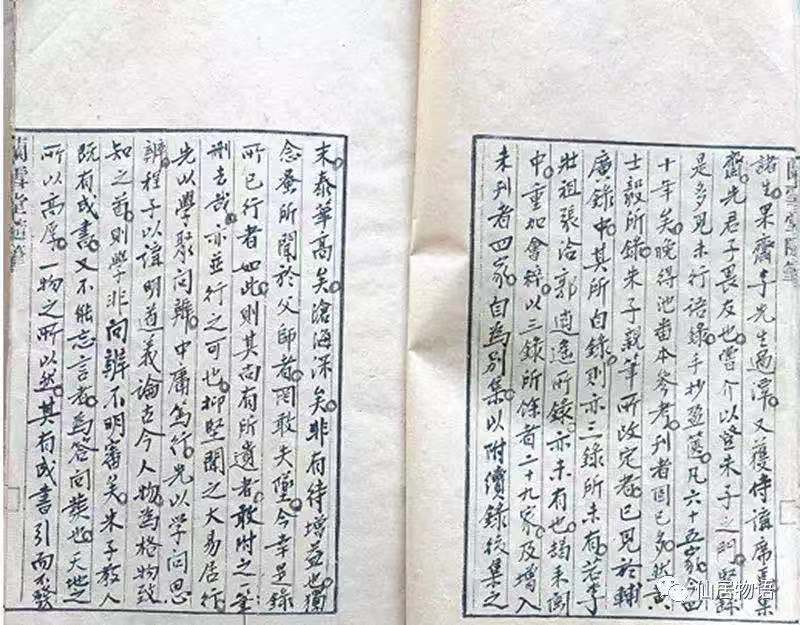 諸生。果齋李先生過潭。又獲侍講席焉果
齋。先君子畏友也。嘗介以登朱子之門。堅繇
是多見未行語錄。手抄盈篋。凡六十五家今四
十年矣。晚得池番本參考。刊者固已多。然黃
士毅所錄朱子親筆所改定者。已見於輔
廣錄中。其所自錄。則亦三錄所未有。若李
壯祖張洽郭逍遙所錄。亦未有也。朅來閩
中。重加會粹。以三錄所餘者二十九家。及增入
未刊者四家。自為別集。以附續錄後集之
末。泰華高矣。滄海深矣。非有待增益也。獨
念蚤所聞於父師者。罔敢失墮。今幸是錄
所已行者如此。則其尚有所遺者。敢附之筆
刪去哉。亦並行之可也。抑堅聞之大易居行。
先以學聚問辨。中庸篤行。先以學問思
辨。程子以講明道義論古今人物。為格物致
知之首。則學非問辨不明審矣。朱子教人
既有成書。又不能忘言者。為答問發也。天地之
所以高厚。一物之所以然。其在成書引而不發
仙居物语